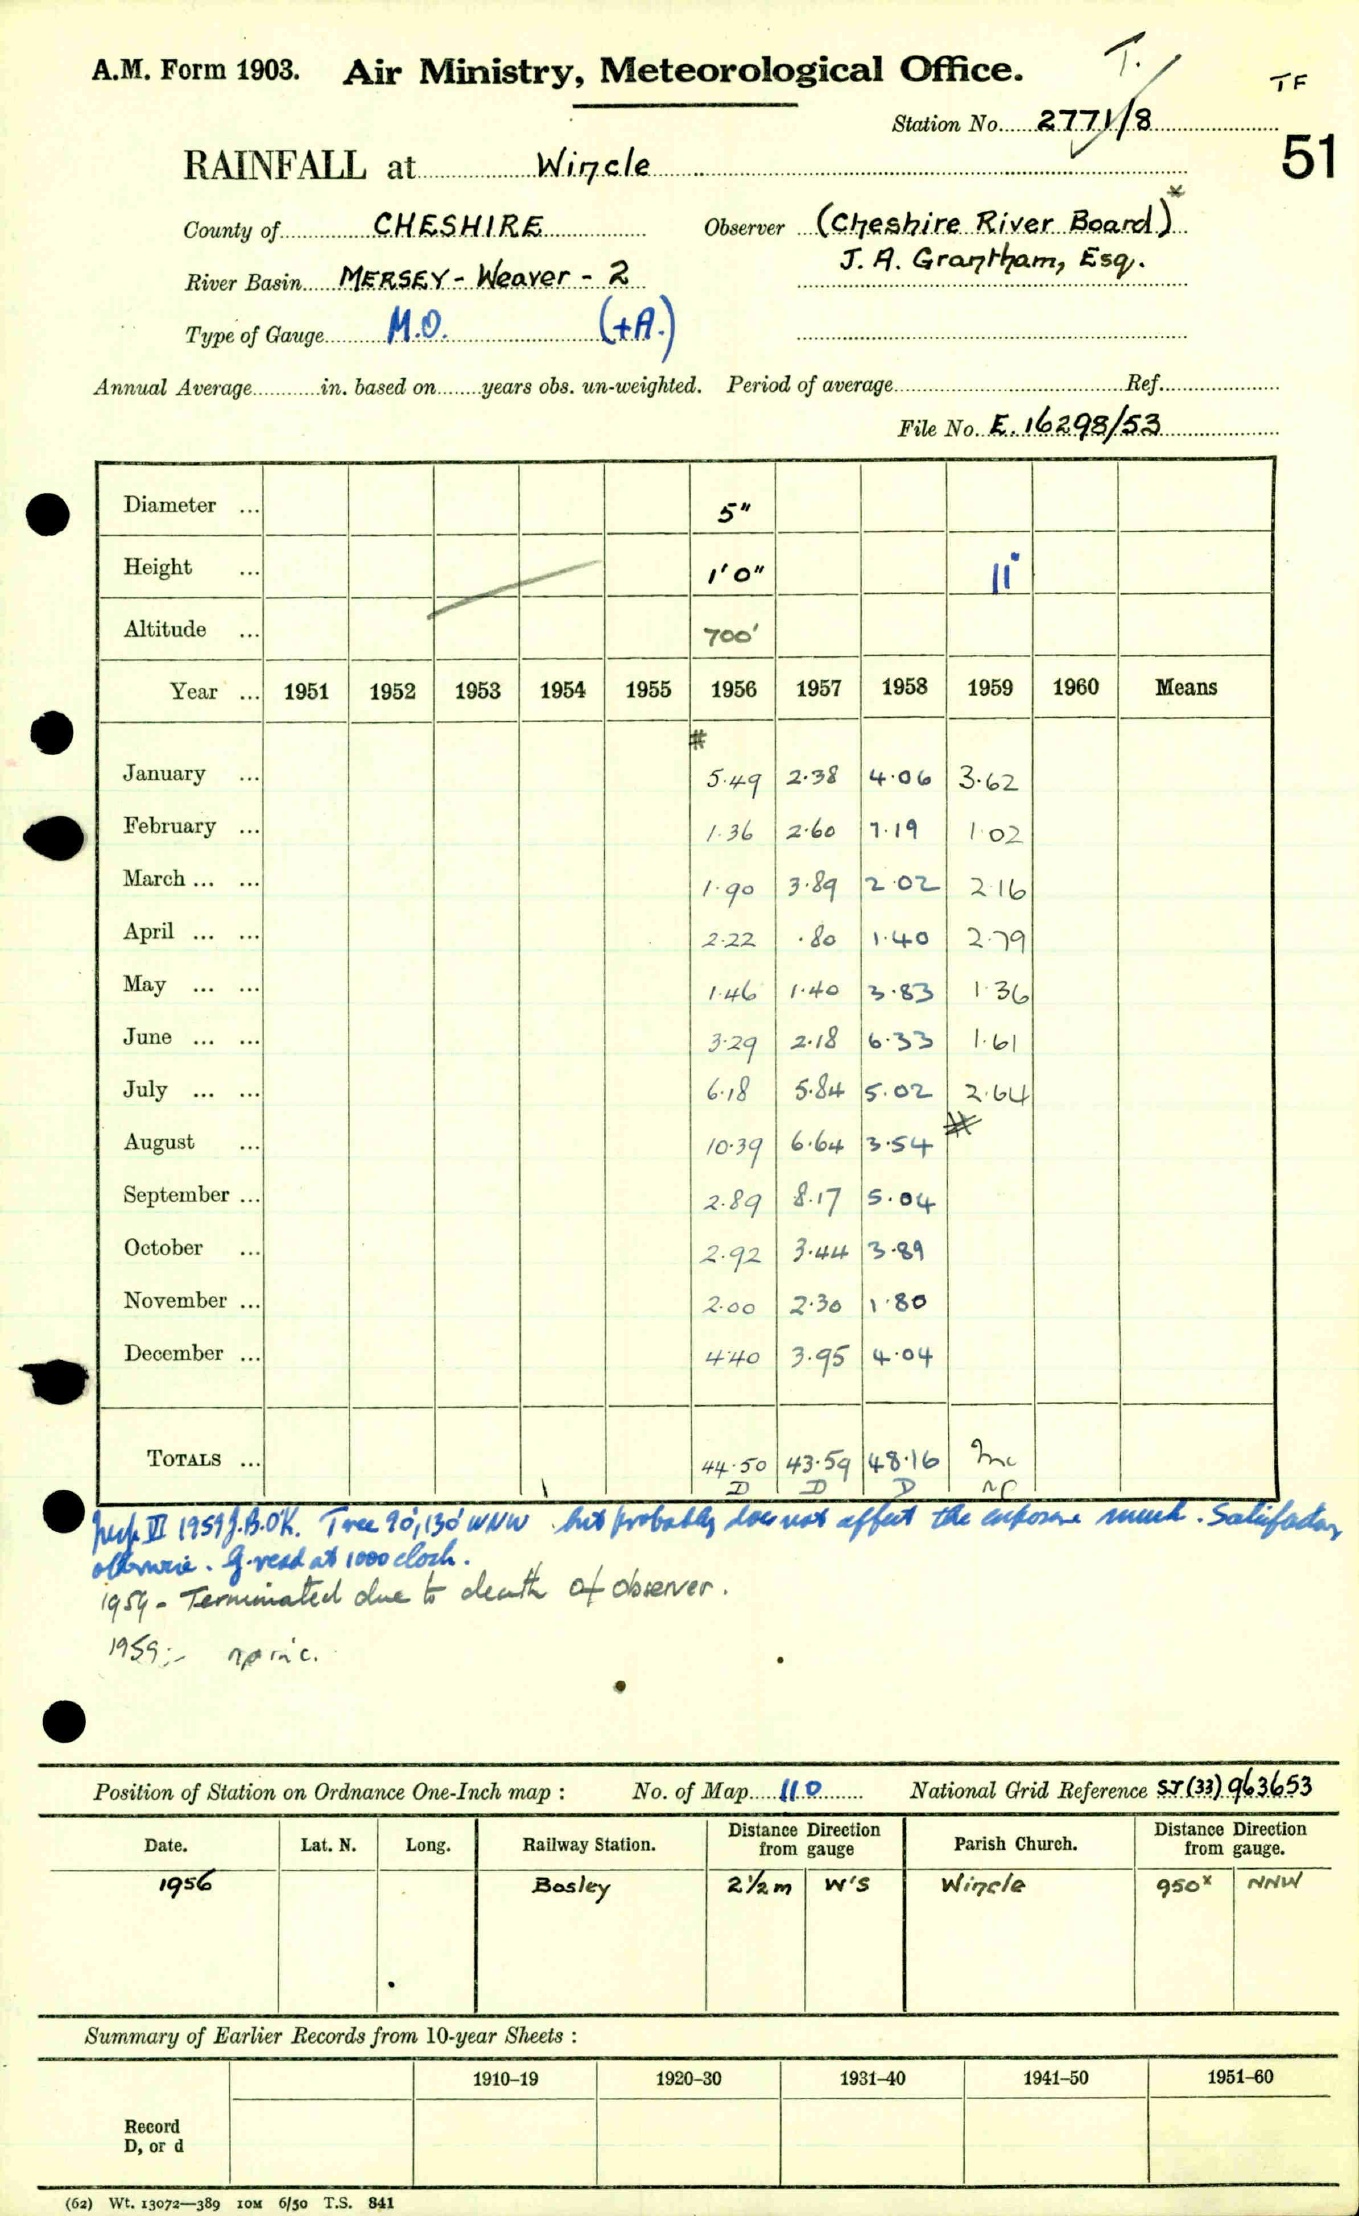 T.
A.M. Form 1903. Air Ministry, Meteorological Office. TF
Station No. 2771/8
51
RAINFALL at Wincle
County of CHESHIRE Observer (Cheshire River Board)*
J. A. Grantham, Esq.
River Basin MERSEY - Weaver - 2
Type of Gauge M.O. (+A.)
Annual Average in. based on years obs. un-weighted. Period of average Ref.
File No. E.16298/53
Diameter ... 5"
Height ... 1'0" 11"
Altitude ... 700'
Year ... 1951 1952 1953 1954 1955 1956 1957 1958 1959 1960 Means
#
January ... 5.49 2.38 4.06 3.62
February ... 1.36 2.60 7.19 1.02
March ... ... 1.90 3.89 2.02 2.16
April ... ... 2.22 .80 1.40 2.79
May ... ... 1.46 1.40 3.83 1.36
June ... ... 3.29 2.18 6.33 1.61
July ... ... 6.18 5.84 5.02 2.64
#
August ... 10.39 6.64 3.54
September ... 2.89 8.17 5.04
October ... 2.92 3.44 3.89
November ... 2.00 2.30 1.80
December ... 4.40 3.95 4.04
TOTALS ... 44.50 43.59 48.16 Inc
D D D
Insp. VI 1959 J.B. OK. Tree 90', 130' WNW but probably does not affect the exposure much. Satisfactory
otherwise. G. read at 1000 clock.
1959 - Terminated due to death of observer.
1959:-
Position of Station on Ordnance One-Inch map : No. of Map 110 National Grid Reference SJ(33) 963653
Date. Lat. N. Long. Railway Station. Distance from Direction gauge Parish Church. Distance from Direction gauge.
1956 Bosley 2½m W'S Wincle 950x NNW
Summary of Earlier Records from 10-year Sheets :
1910–19 1920–30 1931–40 1941–50 1951–60
Record
D, or d
(62) Wt. 13072—389 10M 6/50 T.S. 841